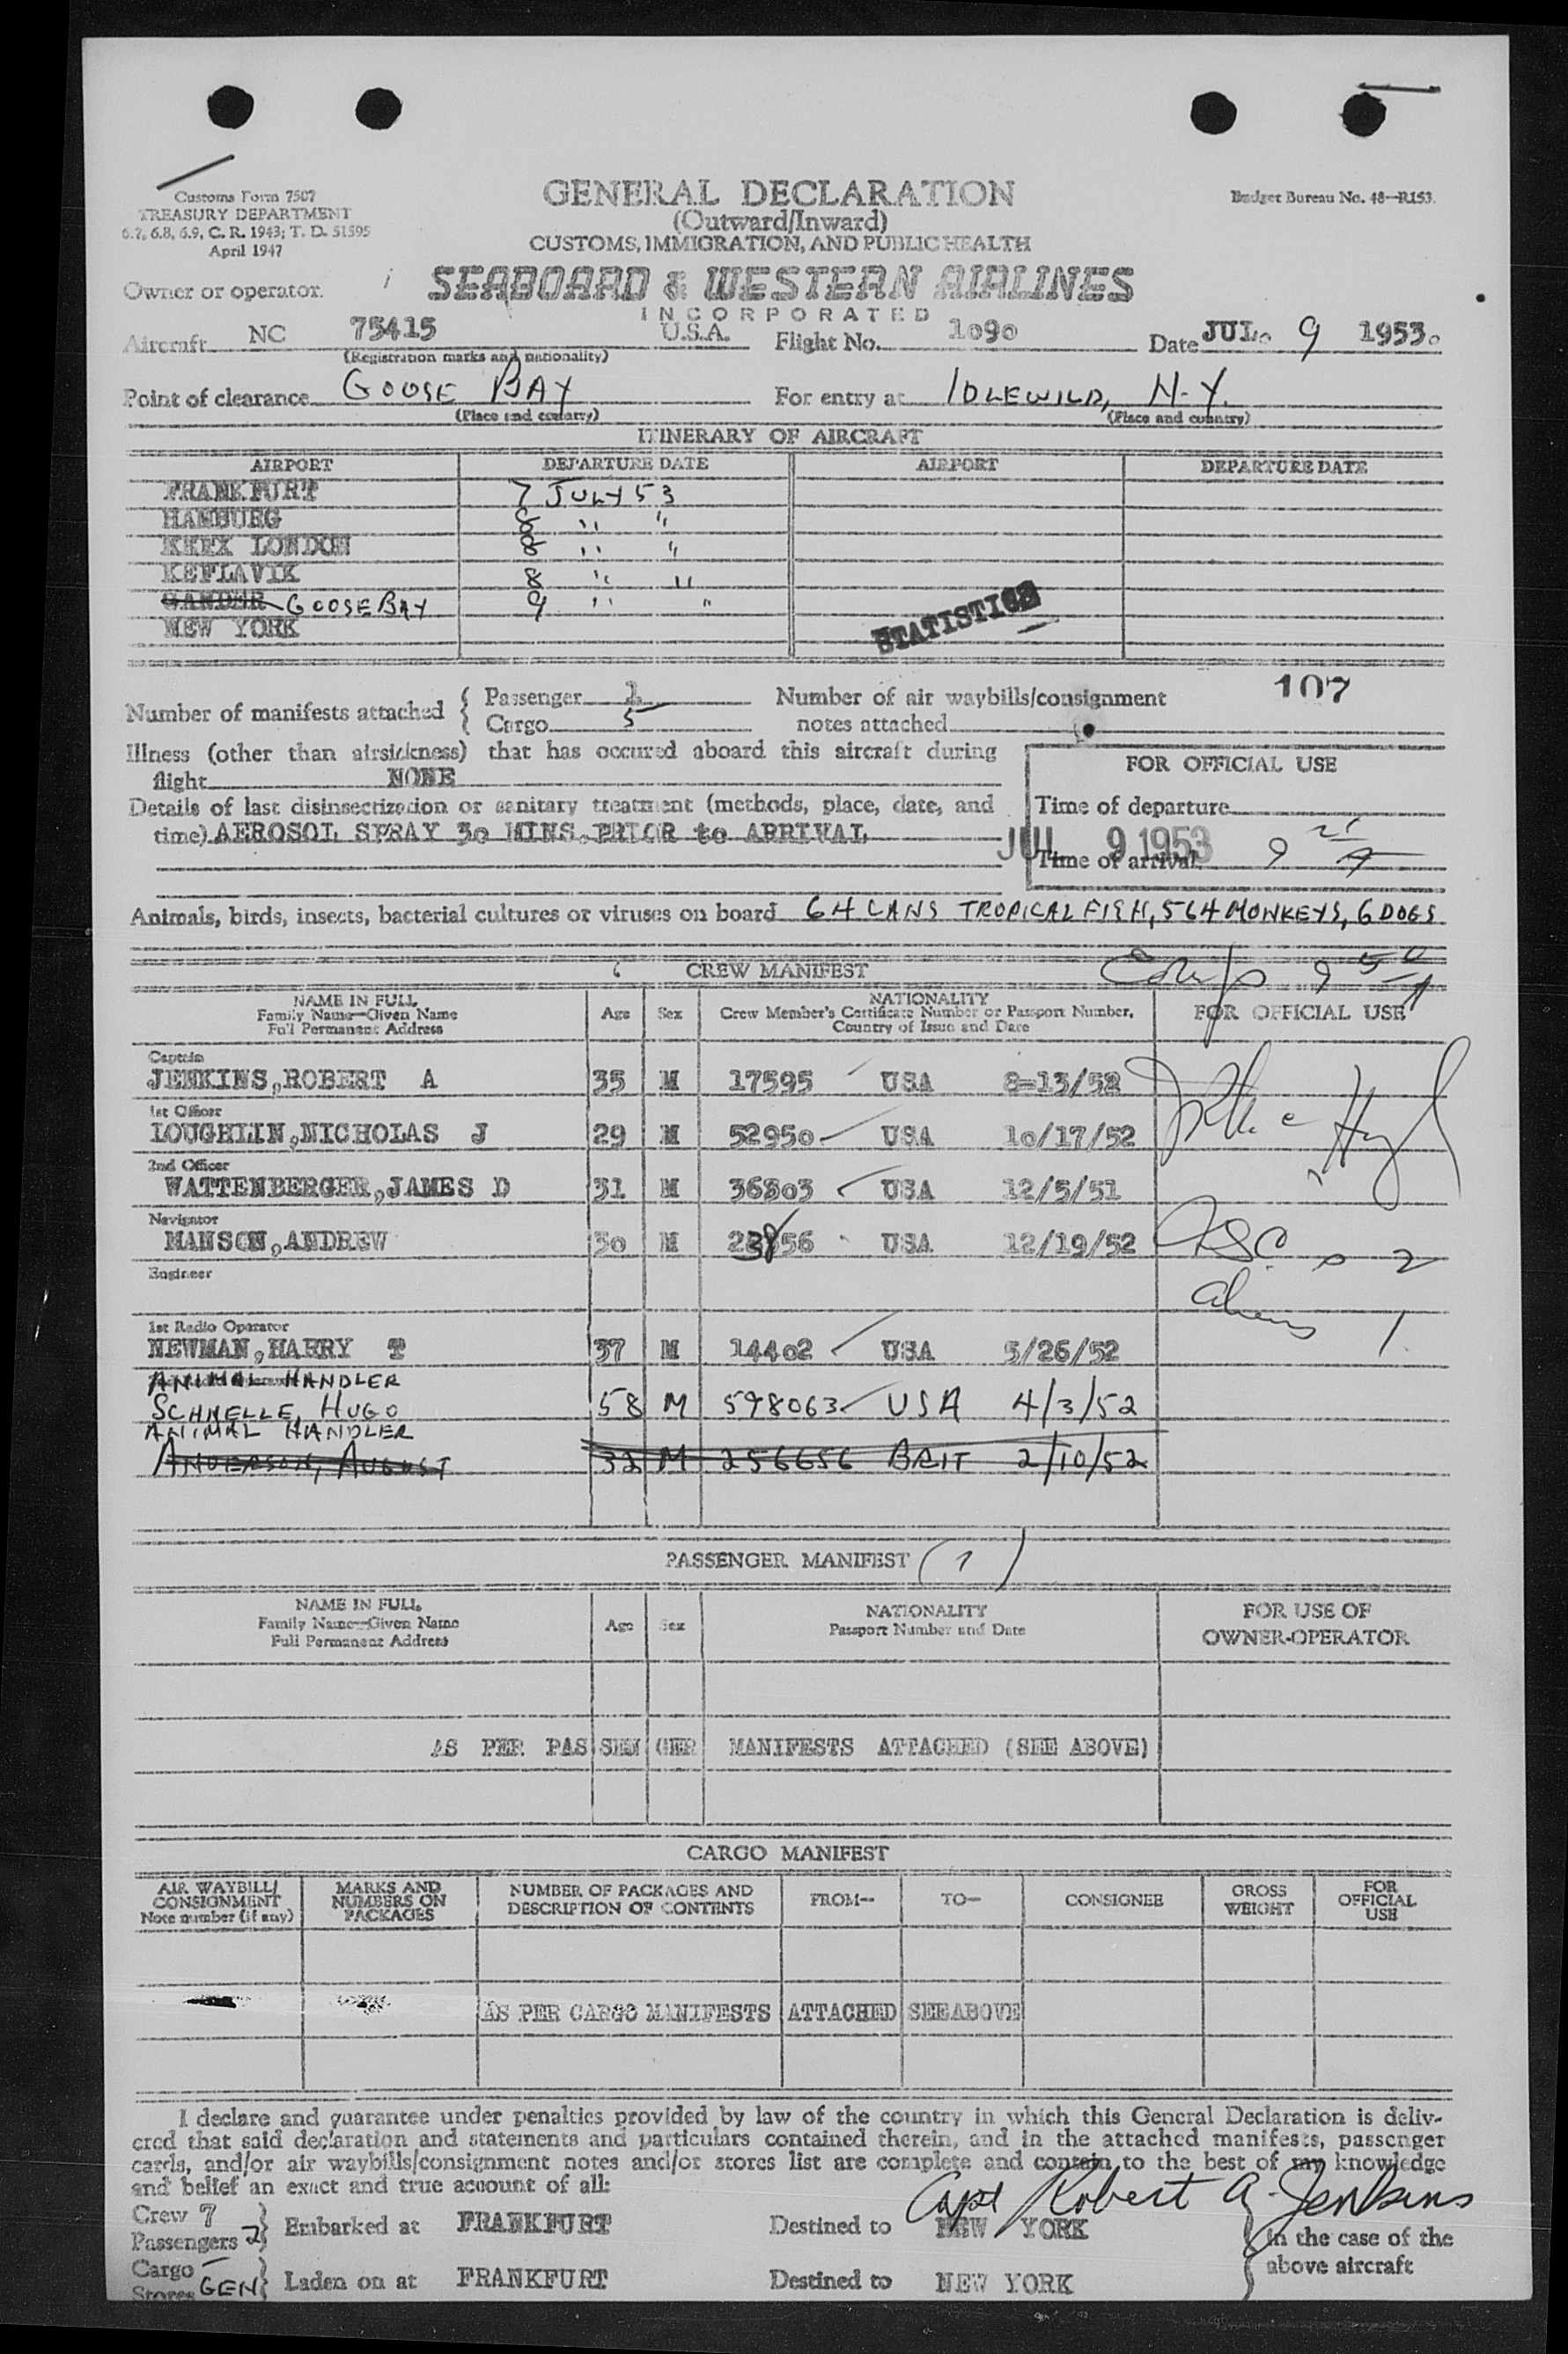 Customs Form 7507
TREASURY DEPARTMENT
6.7, 6.8, 6.9, C. R. 1943; T. D. 51595
April 1947
GENERAL DECLARATION
(Outward/Inward)
CUSTOMS, IMMIGRATION, AND PUBLIC HEALTH
Budget Bureau No. 48—R153.
Owner or operator
SEABOARD & WESTERN AIRLINES
INCORPORATED
Aircraft NC 75415 U.S.A. Flight No. 1090 Date JUL. 9 1953.
(Registration marks and nationality)
Point of clearance GOOSE BAY For entry at IDLEWILD, N.Y.
(Place and country) (Place and country)
ITINERARY OF AIRCRAFT
AIRPORT DEPARTURE DATE AIRPORT DEPARTURE DATE
FRANKFURT 7 JULY 53
HAMBURG 8 " "
LONDON 8 " "
KEFLAVIK 8 " "
GANDER GOOSE BAY 9 " "
NEW YORK
STATISTICS
Number of manifests attached { Passenger 1 Number of air waybills/consignment 107
Cargo 5 notes attached
Illness (other than airsickness) that has occured aboard this aircraft during
flight NONE
FOR OFFICIAL USE
Details of last disinsectization or sanitary treatment (methods, place, date, and
time) AEROSOL SPRAY 30 MINS. PRIOR to ARRIVAL
Time of departure
JUL 9 1953
Time of arrival 9
Animals, birds, insects, bacterial cultures or viruses on board 64 CANS TROPICAL FISH, 564 MONKEYS, 6 DOGS
CREW MANIFEST
NAME IN FULL Age Sex NATIONALITY FOR OFFICIAL USE
Family Name—Given Name Crew Member's Certificate Number or Passport Number,
Full Permanent Address Country of Issue and Date
Captain
JENKINS, ROBERT A 35 M 17595 USA 8-13/52
1st Officer
LOUGHLIN, NICHOLAS J 29 M 52950 USA 10/17/52
2nd Officer
WATTENBERGER, JAMES D 31 M 36803 USA 12/5/51
Navigator
MANSON, ANDREW 30 M USA 12/19/52
Engineer
1st Radio Operator
NEWMAN, HARRY T 37 M 14402 USA 5/26/52
ANIMAL HANDLER
SCHNELLE, HUGO 58 M 598063 USA 4/3/52
ANIMAL HANDLER
ANDERSON, AUGUST 32 M 256656 BRIT 2/10/52
PASSENGER MANIFEST (1)
NAME IN FULL Age Sex NATIONALITY FOR USE OF
Family Name—Given Name Passport Number and Date OWNER-OPERATOR
Full Permanent Address
AS PER PASSENGER MANIFESTS ATTACHED (SEE ABOVE)
CARGO MANIFEST
AIR WAYBILL/ MARKS AND NUMBER OF PACKAGES AND FROM— TO— CONSIGNEE GROSS FOR
CONSIGNMENT NUMBERS ON DESCRIPTION OF CONTENTS WEIGHT OFFICIAL
Note number (if any) PACKAGES USE
AS PER CARGO MANIFESTS ATTACHED SEE ABOVE
I declare and guarantee under penalties provided by law of the country in which this General Declaration is deliv-
ered that said declaration and statements and particulars contained therein, and in the attached manifests, passenger
cards, and/or air waybills/consignment notes and/or stores list are complete and contain to the best of my knowledge
and belief an exact and true account of all:
Capt Robert A. Jenkins
Crew 7
Passengers 2 } Embarked at FRANKFURT Destined to NEW YORK in the case of the
above aircraft
Cargo —
Stores GEN } Laden on at FRANKFURT Destined to NEW YORK